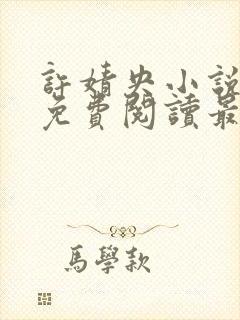 許婧央小說
免費閱讀最
馬學款